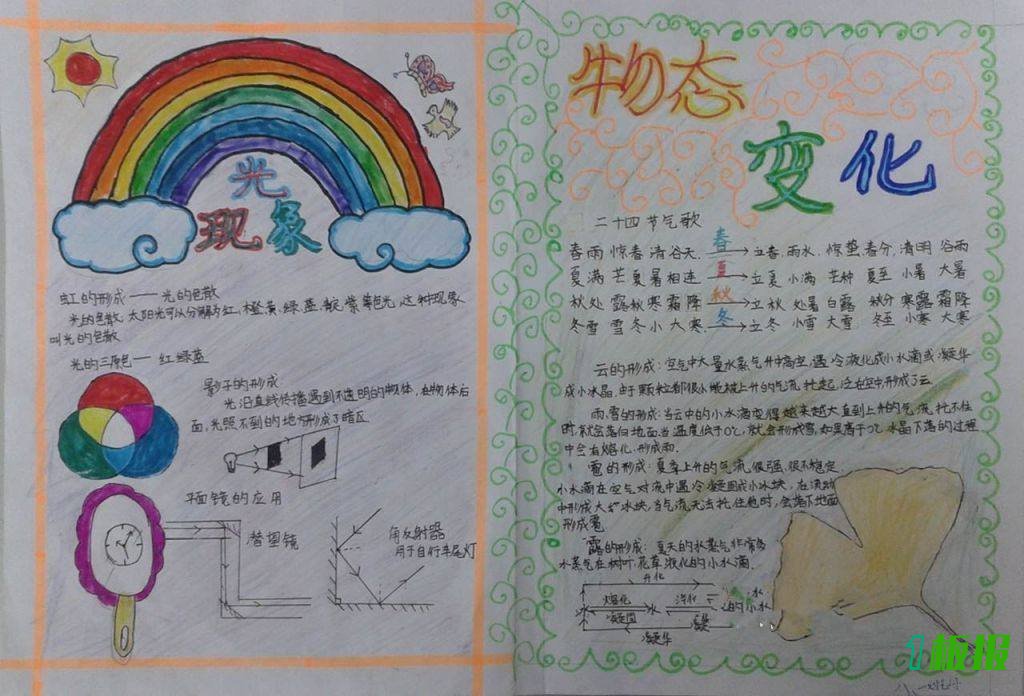 光
现象
虹的形成——光的色散
光的色散:太阳光可以分解为红、橙、黄、绿、蓝、靛、紫等色光,这种现象
叫光的色散
光的三原色—红绿蓝
影子的形成
光沿直线传播遇到不透明的物体,在物体后
面,光照不到的地方形成了暗区
平面镜的应用
潜望镜
角反射器
用于自行车尾灯
物态
变化
二十四节气歌
春雨惊春清谷天 春 立春 雨水 惊蛰 春分 清明 谷雨
夏满芒夏暑相连 夏 立夏 小满 芒种 夏至 小暑 大暑
秋处露秋寒霜降 秋 立秋 处暑 白露 秋分 寒露 霜降
冬雪雪冬小大寒 冬 立冬 小雪 大雪 冬至 小寒 大寒
云的形成:空气中大量水蒸气升中高空,遇冷液化成小水滴或凝华
成小冰晶,由于颗粒都很小,被上升的气流托起,泛在空中,形成了云
雨,雪的形成:当云中的小水滴变得越来越大直到上升的气流托不住
时,就会落向地面,当温度低于0℃,就会形成雪,如果高于0℃冰晶下落的过程
中会有熔化,形成雨.
雹的形成:夏季上升的气流很强,很不稳定.
小水滴在空气对流中遇冷凝固成小冰块,在流动
中形成大冰块,当气流无法托住他时,会落下地面
形成雹
露的形成:夏天的水蒸气非常多
水蒸气在树叶,花草液化的小水滴.
升化
熔化 汽化 水
冰 水 的小水
凝固
凝华
1板报